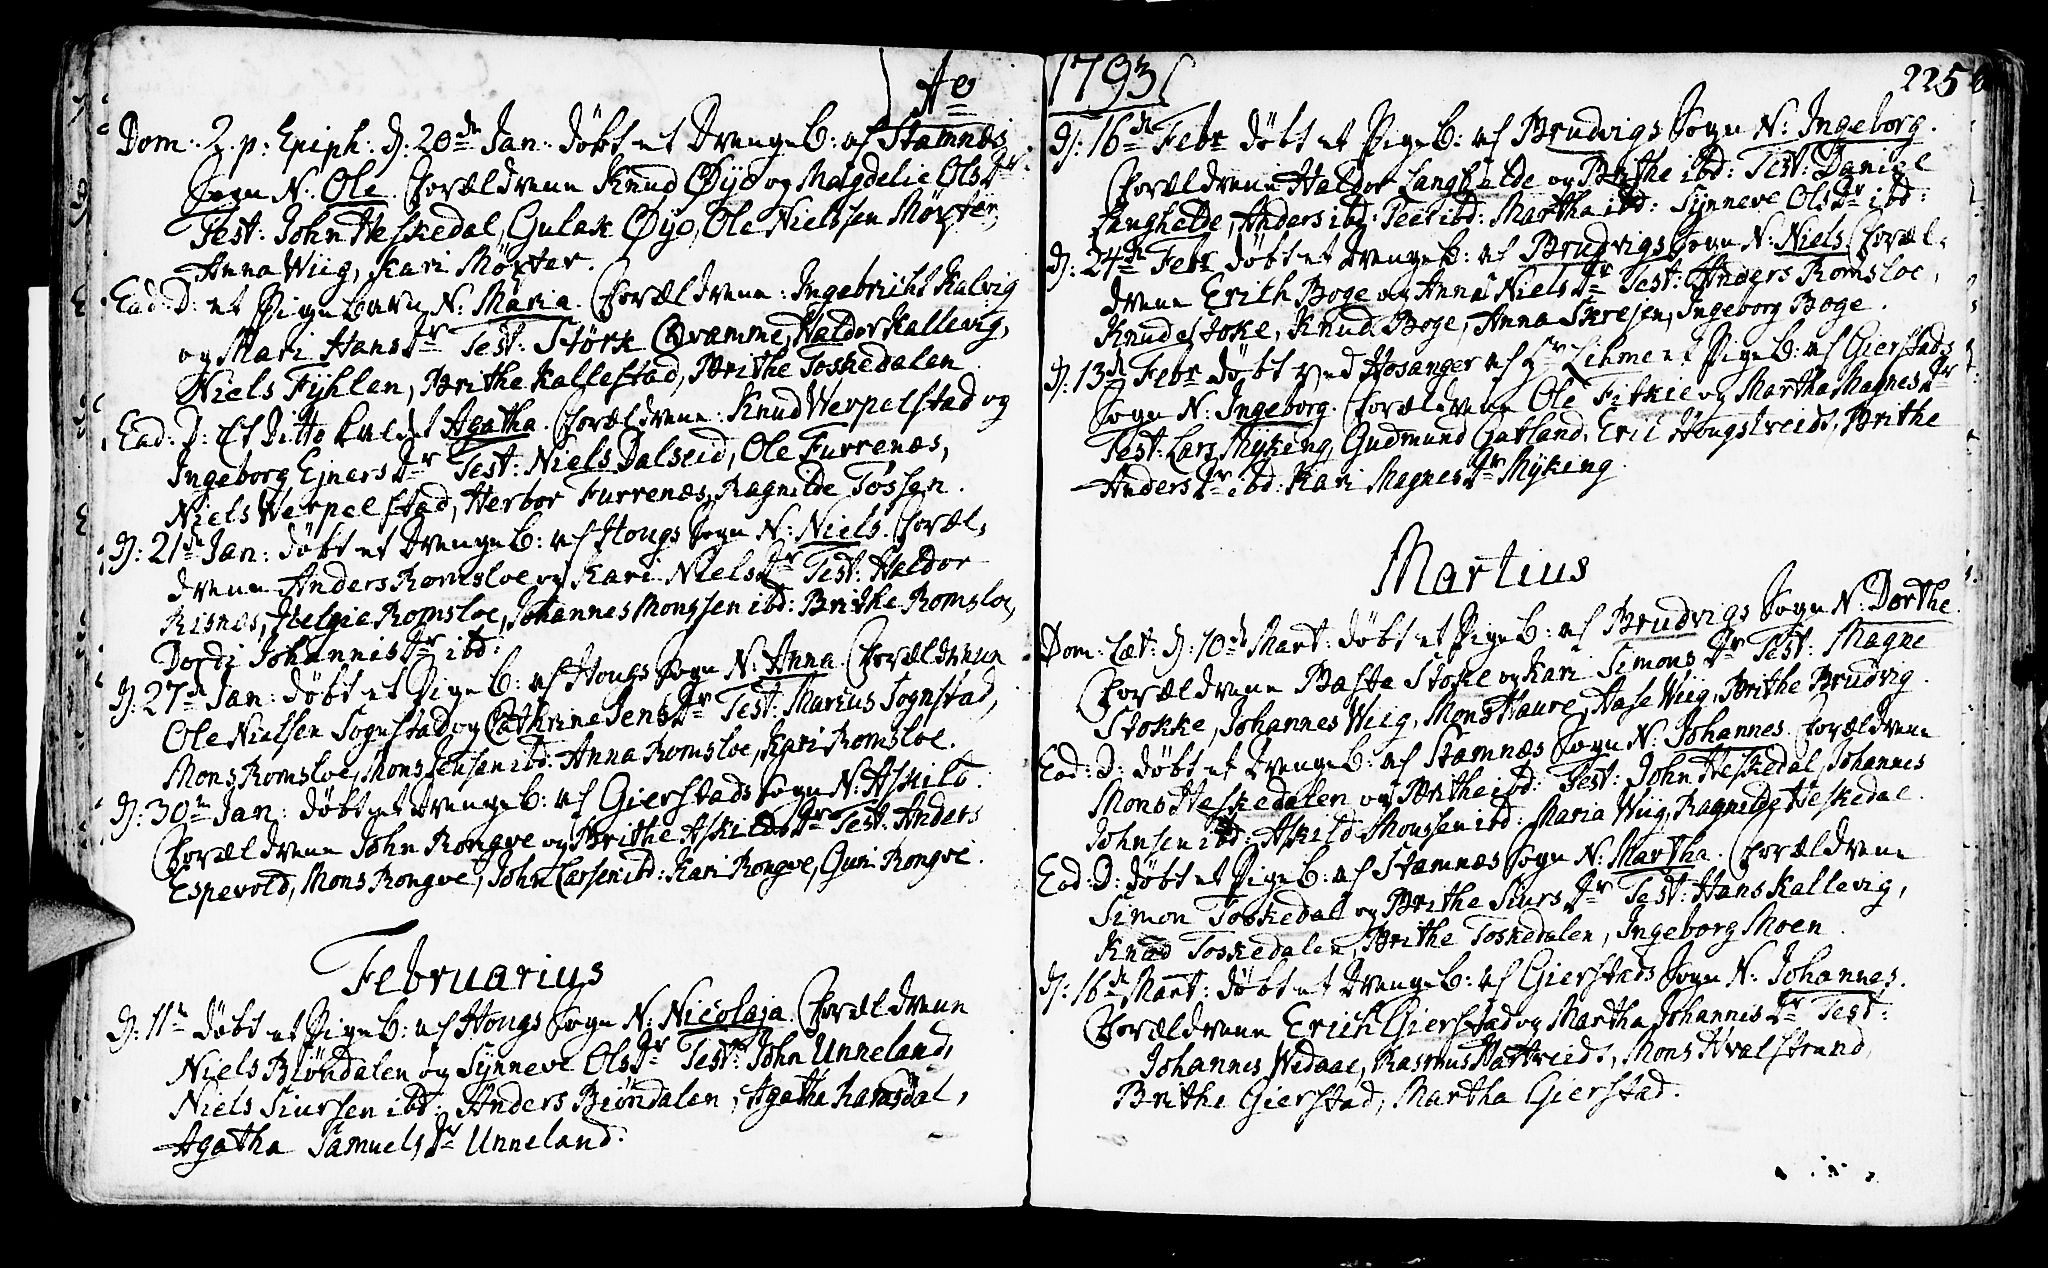 Ao
Dom: 2. p: Epiph. D: 20de Jan. døbt et DrengeB: af Stamnes
Sogn N: Ole. Forældrene Knud Øye og Magdelie OlsDr.
Test: John Heskedal, Gulak Øye, Ole Nielssen Møxter,
Anna Wiig, Kari Møxter.
Ead: D: et Pigebarn N: Maria. Forældrene: Ingebricht Kalvig
og Mari HansDr Test: Størk Qvamme, Haldor Kallevig,
Niels Fyhlen, Brithe Kallestad, Brithe Toskedalen.
Ead: D: Et Ditto kaldet Agatha. Forældrene: Knud Werpelstad og
Ingeborg EjnersDr Test: Niels Dalseid, Ole Furrenæs,
Niels Werpelstad, Herbor Furrenæs, Ragnilde Tossen.
D: 21de Jan: døbt et DrengeB: af Hougs Sogn N: Niels. Foræl-
drene Anders Romsloe og Kari NielsDr Test: Haldor
Risnes, Helgie Romsloe, Johannes Monssen ibd: Brithe Romsloe,
Dordi JohannisDr ibd:
D: 27de Jan: døbt et PigeB: af Hougs Sogn N: Anna. Forældrene
Ole Nielsen Sognstad og Cathrine JensDr Test: Marius Sognstad,
Mons Romsloe, Mons Jensen ibd: Anna Romsloe, Kari Romsloe.
D: 30te Jan: døbt et DrengeB: af Gierstads Sogn N: Askild.
Forældrene John Rongve og Brithe AskildsDr Test: Anders
Espevold, Mons Rongve, John Larsen ibd: Kari Rongve, Guri Rongve.
Februarius
D: 11te døbt et PigeB: af Hougs Sogn N: Nicolaja. Forældrene
Niels Biøndalen og Synneve OlsDr Test: John Unneland,
Niels Siursen ibd: Anders Biøndalen, Agatha
Agatha SamuelsDr Unneland.
1793
225
D: 16de Febr døbt et PigeB: af Brudvigs Sogn N: Ingeborg.
Forældrene Haldor Langhelde og Brithe ibd: Test: Daniel
Langhelde, Anders ibd: Peer ibd: Martha ibd: Synneve OlsDr ibd:
D: 24de Febr døbt et DrengeB: af Brudvigs Sogn N: Niels. Foræl-
drene Erich Boge og Anna NielsDr Test: Anders Romsloe,
Knud Stoke, Knud Boge, Anna Skrejen, Ingeborg Boge.
D: 13de Febr døbt ved Hosanger af Hr Lihme et PigeB: af Gierstads
Sogn N: Ingeborg. Forældrene Ole Fitkie og Martha MagnesDr
Test: Lars Myking, Gudmund Gatland, Eric Hougstveidt, Brithe
AndersDr ibd: Kari MagnesDr Myking.
Martius
Dom: Læt: D: 10de Mart: døbt et PigeB: af Brudvigs Sogn N: Dorthe.
Forældrene Baste Stoke og Kari SimonsDr Test: Magne
Stokke, Johannes Wiig, Mons Haure, Aase Wiig, Brithe Brudvig.
Ead: D: døbt et DrengeB: af Stamnæs Sogn N: Johannes. Forældrene
Mons Heskedalen og Brithe ibd: Test: John Heskedal, Johannes
Johnsen ibd: Askild Monssen ibd: Maria Wiig, Ragnilde Heskedal.
Ead: D: døbt et PigeB: af Stamnæs Sogn N: Martha. Forældrene
Simon Toskedal og Brithe SiursDr Test: Hans Kallevig,
Knud Toskedalen, Brithe Toskedalen, Ingeborg Moen.
D: 16de Mart: døbt et DrengeB: af Gierstads Sogn N: Johannes.
Forældrene Erich Gierstad og Martha JohannisDr Test:
Johannes Wedaae, Rasmus, Mons Hvalstrand,
Brithe Gierstad, Martha Gierstad.